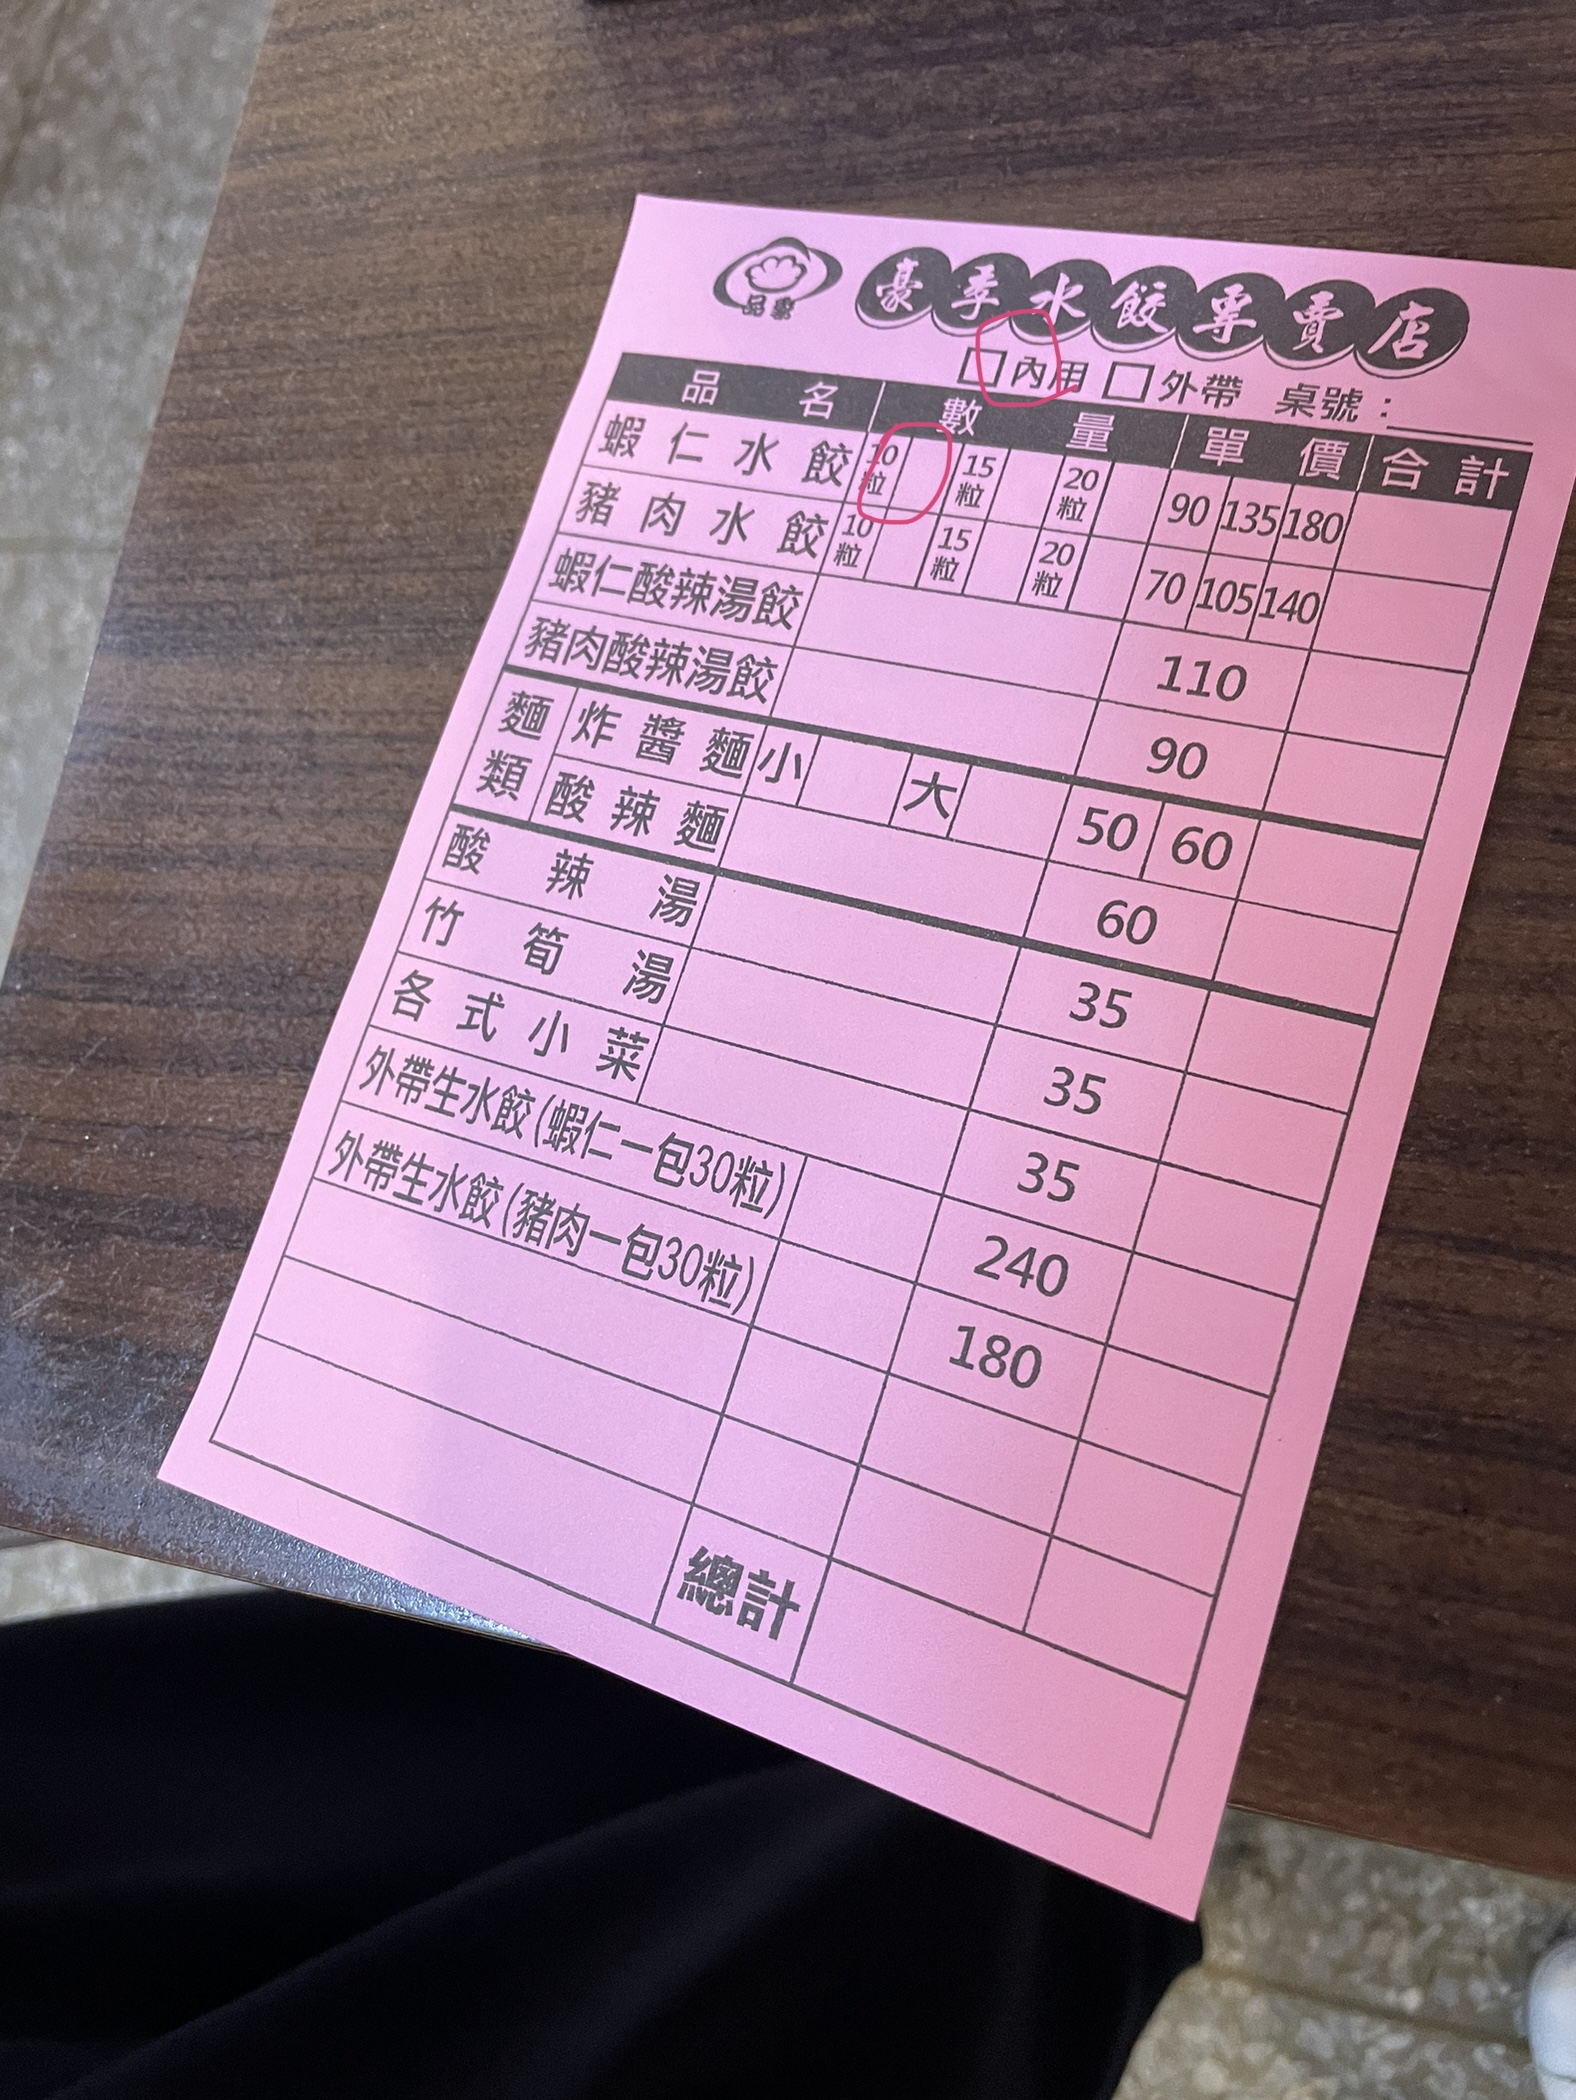 品豪
豪季水餃專賣店
□內用 □外帶 桌號：
品名 數量 單價 合計
蝦仁水餃 10粒 15粒 20粒 90 135 180
豬肉水餃 10粒 15粒 20粒 70 105 140
蝦仁酸辣湯餃 110
豬肉酸辣湯餃 90
麵類 炸醬麵 小 大 50 60
酸辣麵 60
酸辣湯 35
竹筍湯 35
各式小菜 35
外帶生水餃(蝦仁一包30粒) 240
外帶生水餃(豬肉一包30粒) 180
總計